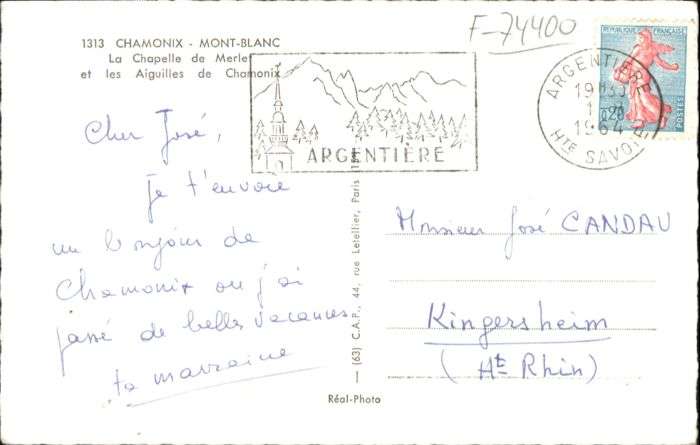 F-74400
1313 CHAMONIX - MONT-BLANC
La Chapelle de Merlet
et les Aiguilles de Chamonix
ARGENTIÈRE
REPUBLIQUE FRANÇAISE
0,20
POSTES
ARGENTIERE
1964
HTE SAVOIE
Cher José,
Je t'envoie
un bonjour de
Chamonix ou j'ai
passé de belles vacances
ta marraine
(63) C.A.P., 44, rue Letellier, Paris 15e
Réal-Photo
Monsieur José CANDAU
Kingersheim
(Ht Rhin)